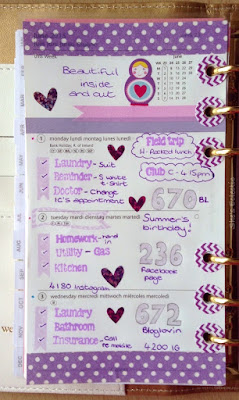 Beautiful
inside
and out
1 monday lundi montag lunes lunedì
Field trip
H-Packed lunch
Laundry - Suit
Club C - 4.15pm
Reminder - S white
t-shirt
Doctor - Change
IC's appointment
670 BL
2 tuesday mardi dienstag martes martedì
Summer's
birthday!
Homework - hand
in
Utility - Gas
236
Kitchen
Facebook
page
4180 Instagram
3 wednesday mercredi mittwoch miércoles mercoledì
Laundry
672
Bathroom
Bloglovin
Insurance - Call
4200 IG